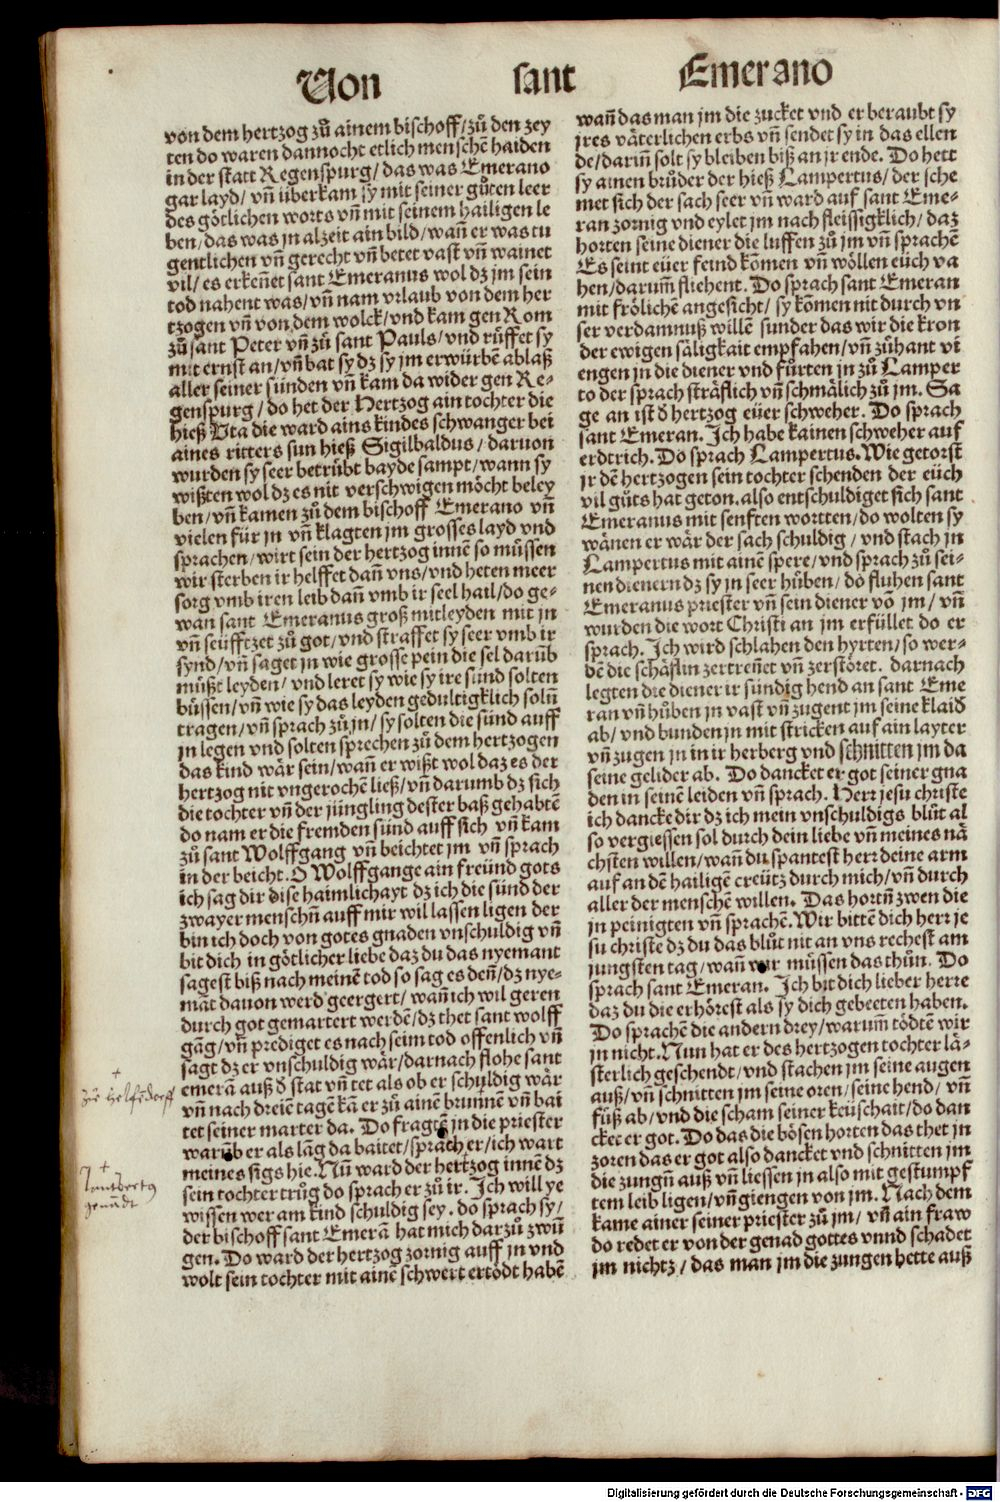 Von sant Emerano
von dem hertzog zů ainem bischoff/zů den zey
ten do waren dannocht etlich menschē haiden
in der statt Regenspurg/das was Emerano
gar layd/vn̄ überkam sy mit seiner gůten leer
des götlichen worts vn̄ mit seinem hailigen le
ben/das was jn alzeit ain bild/wan̄ er was tu
gentlichen vn̄ gerecht vn̄ betet vast vn̄ wainet
vil/es erken̄et sant Emeranus wol dz im sein
tod nahent was/vn̄ nam vrlaub von dem her
tzogen vn̄ von dem wolck/vnd kam gen Rom
zů sant Peter vn̄ zů sant Pauls/vnd růffet sy
mit ernst an/vn̄ bat sy dz sy jm erwürbē ablaß
aller seiner sünden vn̄ kam da wider gen Re-
genspurg/do het der Hertzog ain tochter die
hieß Vta die ward ains kindes schwanger bei
aines ritters sun hieß Sigilbaldus/daruon
wurden sy seer betrübt bayde sampt/wann sy
wißten wol dz es nit verschwigen möcht beley
ben/vn̄ kamen zů dem bischoff Emerano vn̄
vielen für jn vn̄ klagten jm grosses layd vnd
sprachen/wirt sein der hertzog innē so müssen
wir sterben ir helffet dan̄ vns/vnd heten meer
sorg vmb iren leib dan̄ vmb ir seel hail/do ge-
wan sant Emeranus groß mitleyden mit jn
vn̄ seüfftzet zů got/vnd straffet sy seer vmb ir
synd/vn̄ saget jn wie grosse pein die sel darūb
müßt leyden/vnd leret sy wie sy ire sünd solten
büssen/vn̄ wie sy das leyden gedultigklich soln̄
tragen/vn̄ sprach zů jn/sy solten die sünd auff
jn legen vnd solten sprechen zů dem hertzogen
das kind wär sein/wan̄ er wißt wol daz es der
hertzog nit vngerochen ließ/vn̄ darumb dz sich
die tochter vn̄ der jüngling dester baß gehabtē
do nam er die fremden sünd auff sich vn̄ kam
zů sant Wolffgang vn̄ beichtet jm vn̄ sprach
in der beicht. O Wolffgange ain freünd gots
ich sag dir dise haimlichayt dz ich die sünd der
zwayer menschn̄ auff mir wil lassen ligen der
bin ich doch von gotes gnaden vnschuldig vn̄
bit dich in götlicher liebe daz du das nyemant
sagest biß nach meinē tod so sag es den̄/dz nye-
māt dauon werd geergert/wan̄ ich wil geren
durch got gemartert werdē/dz thet sant wolff
gāg/vn̄ prediget es nach seim tod offenlich vn̄
sagt dz er vnschuldig wär/darnach flohe sant
emerā auß d̄ stat vn̄ tet als ob er schuldig wär
vn̄ nach dreiē tagē kā er zů ainē brunnē vn̄ bai
tet seiner marter da. Do fragtē jn die priester
warūb er als lāg da baitet/sprach er/ich wart
meines sigs hie. Nun̄ ward der hertzog innē dz
sein tochter trůg do sprach er zů ir. Ich will ye
wissen wer am kind schuldig sey. do sprach sy/
der bischoff sant Emerā hat mich darzů zwū
gen. Do ward der hertzog zornig auff jn vnd
wolt sein tochter mit ainē schwert ertödt habē
wan̄ das man jm die zucket vnd er beraubt sy
jres väterlichen erbs vn̄ sendet sy in das ellen
de/darin̄ solt sy bleiben biß an jr ende. Do hett
sy ainen brůder der hieß Lampertus/der sche
met sich der sach seer vn̄ ward auf sant Eme-
ran zornig vnd eylet jm nach fleissigklich/daz
horten seine diener die luffen zů jm vn̄ sprachē
Es seint eüer feind kōmen vn̄ wöllen eüch va
hen/darum̄ fliehent. Do sprach sant Emeran
mit frölichē angesicht/sy kōmen nit durch vn
ser verdamnuß willē sunder das wir die kron
der ewigen säligkait empfahen/vn̄ zůhant vi
engen jn die diener vnd fůrten jn zů Lamper
to der sprach sträflich vn̄ schmälich zů jm. Sa
ge an ist d̄ hertzog eüer schweher. Do sprach
sant Emeran. Ich habe kainen schweher auf
erdtrich. Do sprach Lampertus. Wie getorst
jr dē hertzogen sein tochter schenden der eüch
vil gůts hat geton. also entschuldiget sich sant
Emeranus mit senften wortten/do wolten sy
wänen er wär der sach schuldig/vnd stach jn
Lampertus mit ainē spere/vnd sprach zů sei-
nen dienern dz sy jn seer hüben/do fluhen sant
Emeranus priester vn̄ sein diener vō jm/vn̄
wurden die wort Christi an jm erfüllet do er
sprach. Ich wird schlahen den hyrten/so wer-
dē die schäflin zertren̄et vn̄ zerstöret. darnach
legten die diener ir sündig hend an sant Eme
ran vn̄ hůben jn vast vn̄ zugent jm seine klaid
ab/vnd bunden jn mit stricken auf ain layter
vn̄ zugen jn in ir herberg vnd schnitten jm da
seine gelider ab. Do dancket er got seiner gna
den in seinē leiden vn̄ sprach. Herr jesu christe
ich dancke dir dz ich mein vnschuldigs blůt al
so vergiessen sol durch dein liebe vn̄ meines nā
chsten willen/wan̄ du spantest herr deine arm
auf an dē hailigē creütz durch mich/vn̄ durch
aller der menschē willen. Das hortn̄ zwen die
jn peinigten vn̄ sprachē. Wir bittē dich herr je
su christe dz du das blůt nit an vns rechest am
jungsten tag/wan̄ wir müssen das thůn. Do
sprach sant Emeran. Ich bit dich lieber herre
daz du die erhörest als sy dich gebeeten haben.
Do sprachē die andern drey/warum̄ tödtē wir
jn nicht. Nun hat er des hertzogen tochter lä-
sterlich geschendt/vnd stachen jm seine augen
auß/vn̄ schnitten jm seine oren/seine hend/vn̄
füß ab/vnd die scham seiner keüschait/do dan
cket er got. Do das die bösen horten das thet jn
zoren das er got also dancket vnd schnitten jm
die zungn̄ auß vn̄ liessen jn also mit gestumpf
tem leib ligen/vn̄ giengen von jm. Nach dem
kame ainer seiner priester zů jm/vn̄ ain fraw
do redet er von der genad gottes vnnd schadet
jm nichtz/das man jm die zungen hette auß
zů Helfēdorff
Lantbertg
genādt
Digitalisierung gefördert durch die Deutsche Forschungsgemeinschaft - DFG